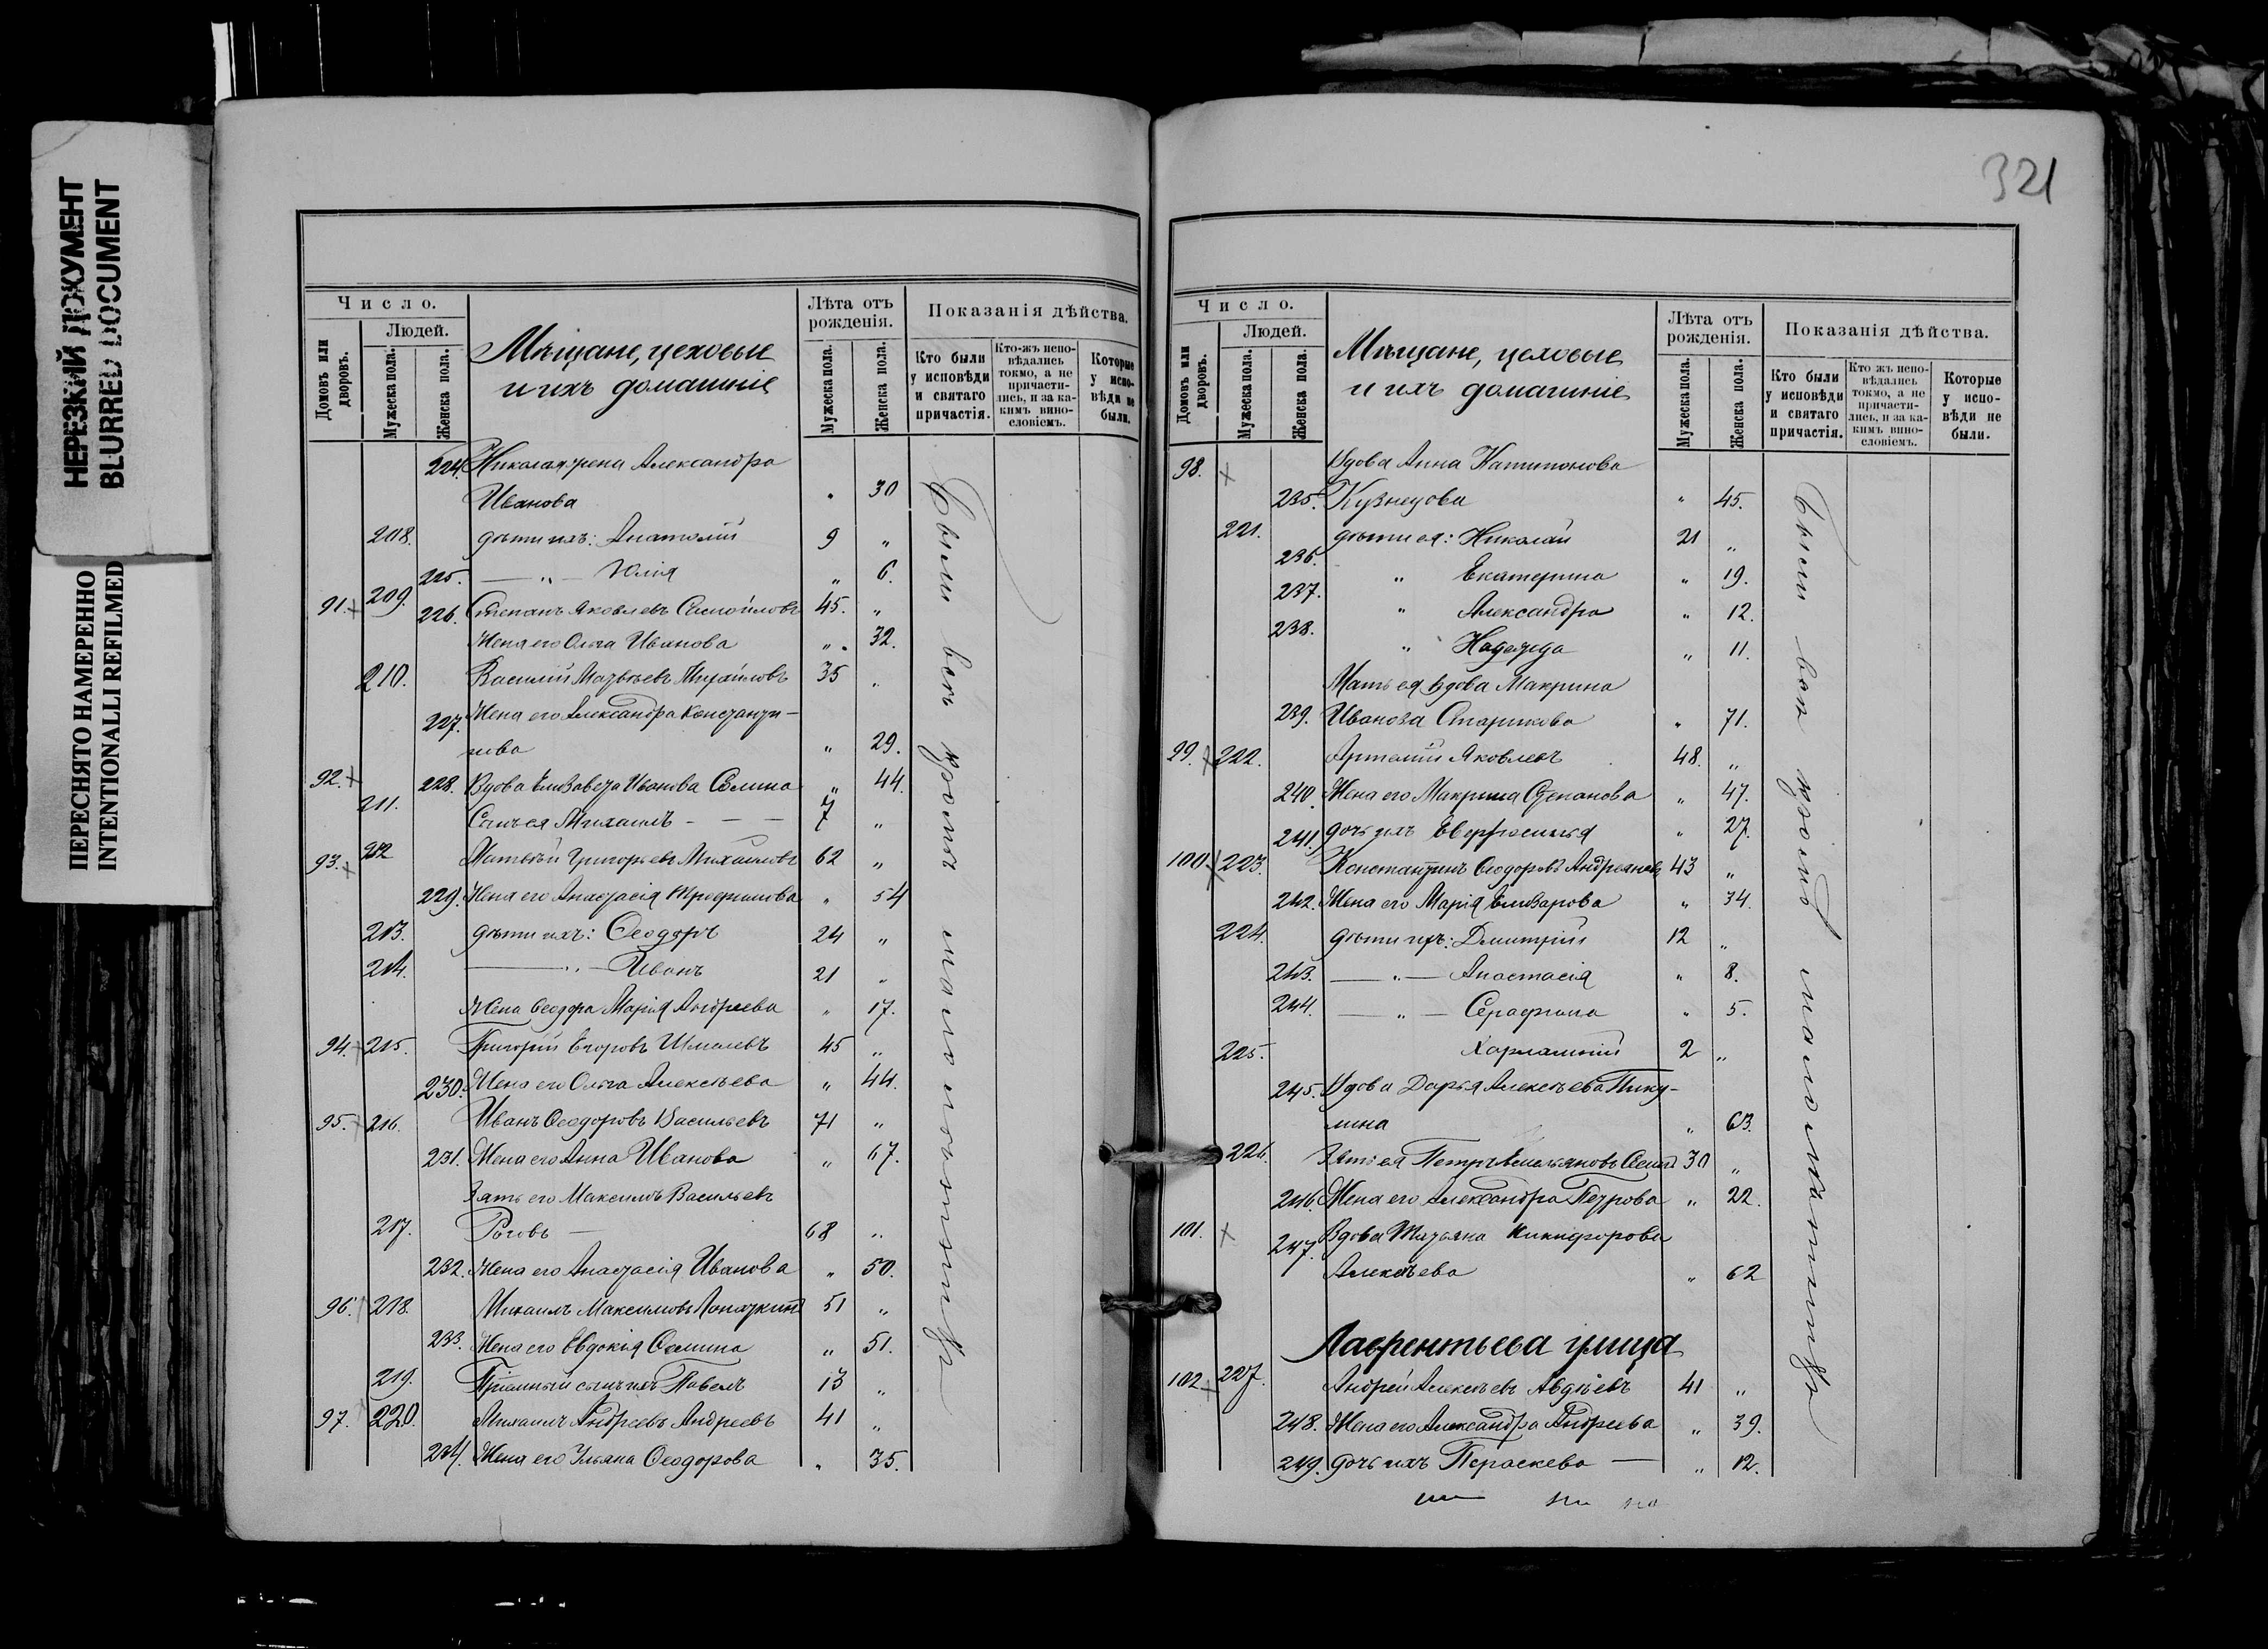 НЕРЕЗКИЙ ДОКУМЕНТ
BLURRED DOCUMENT
ПЕРЕСНЯТО НАМЕРЕННО
INTENTIONALLI REFILMED
Число.
Домовъ или дворовъ.
Людей.
Мужеска пола.
Женска пола.
Мѣщане, цеховые
и ихъ домашніе
Лѣта отъ рожденія.
Мужеска пола.
Женска пола.
Показанія дѣйства.
Кто были у исповѣди и святаго причастія.
Кто-жъ исповѣдались токмо, а не причастились, и за какимъ винословіемъ.
Которые у исповѣди не были.
224. Николая жена Александра
Иванова " 30
208. дѣти ихъ: Анатолій 9 "
225. — " — Юлія " 6.
91. 209. 226. Степанъ Яковлевъ Самойловъ 45. "
Жена его Ольга Иванова " 32.
210. Василій Матвѣевъ Михайловъ 35 "
227. Жена его Александра Константи-
нова " 29.
92. 228. Вдова Елизавета Иванова Сомина " 44.
211. Сынъ ея Михаилъ - — — 7 "
93. 212 Матвѣй Григорьевъ Михайловъ 62 "
229. Жена его Анастасія Трофимова " 54
213. дѣти ихъ: Ѳеодоръ 24 "
214. — " — Иванъ 21 "
Жена Ѳеодора Марія Андреева " 17.
94. 215. Григорій Егоровъ Шмелевъ 45 "
230. Жена его Ольга Алексѣева " 44.
95. 216. Иванъ Ѳеодоровъ Васильевъ 71 "
231. Жена его Анна Иванова " 67.
Зять его Максимъ Васильевъ
217. Роговъ — 68 "
232. Жена его Анастасія Иванова " 50.
96. 218. Михаилъ Максимовъ Лопаткинъ 51 "
233. Жена его Евдокія Ѳомина " 51.
219. Пріемный сынъ ихъ Павелъ 13 "
97. 220. Михаилъ Андреевъ Андреевъ 41 "
234. Жена его Ульяна Ѳеодорова " 35.
Были всѣ кромѣ малолѣтнихъ
321
Число.
Домовъ или дворовъ.
Людей.
Мужеска пола.
Женска пола.
Мѣщане, цеховые
и ихъ домашніе
Лѣта отъ рожденія.
Мужеска пола.
Женска пола.
Показанія дѣйства.
Кто были у исповѣди и святаго причастія.
Кто жъ исповѣдались токмо, а не причастились, и за какимъ винословіемъ.
Которые у исповѣди не были.
98. Вдова Анна
235. Кузнецова " 45.
221. дѣти ея: Николай 21 "
236. " Екатерина " 19.
237. " Александра " 12.
238. " Надежда " 11.
Мать ея вдова Макрина
239. Иванова Старикова " 71.
99. 222. Артемій Яковлевъ 48. "
240. Жена его Макрина Степанова " 47.
241. дочь ихъ Евфросинія " 27.
100. 223. Константинъ Ѳеодоровъ Андреяновъ 43 "
242. Жена его Марія Елизарова " 34.
224. дѣти ихъ: Димитрій 12 "
243. — " — Анастасія " 8.
244. — " — Серафима " 5.
225. Харлампій 2 "
245. Вдова Дарья Алексѣева Пику-
лина " 63.
226. Зять ея Петръ Емельяновъ 30 "
246. Жена его Александра Петрова " 22.
101. 247. Вдова Татьяна Никифорова
Алексѣева " 62
Лаврентьева улица
102. 227. Андрей Алексѣевъ Авдѣевъ 41 "
248. Жена его Александра Андреева " 39.
249. дочь ихъ Пераскева — " 12.
Были всѣ кромѣ малолѣтнихъ